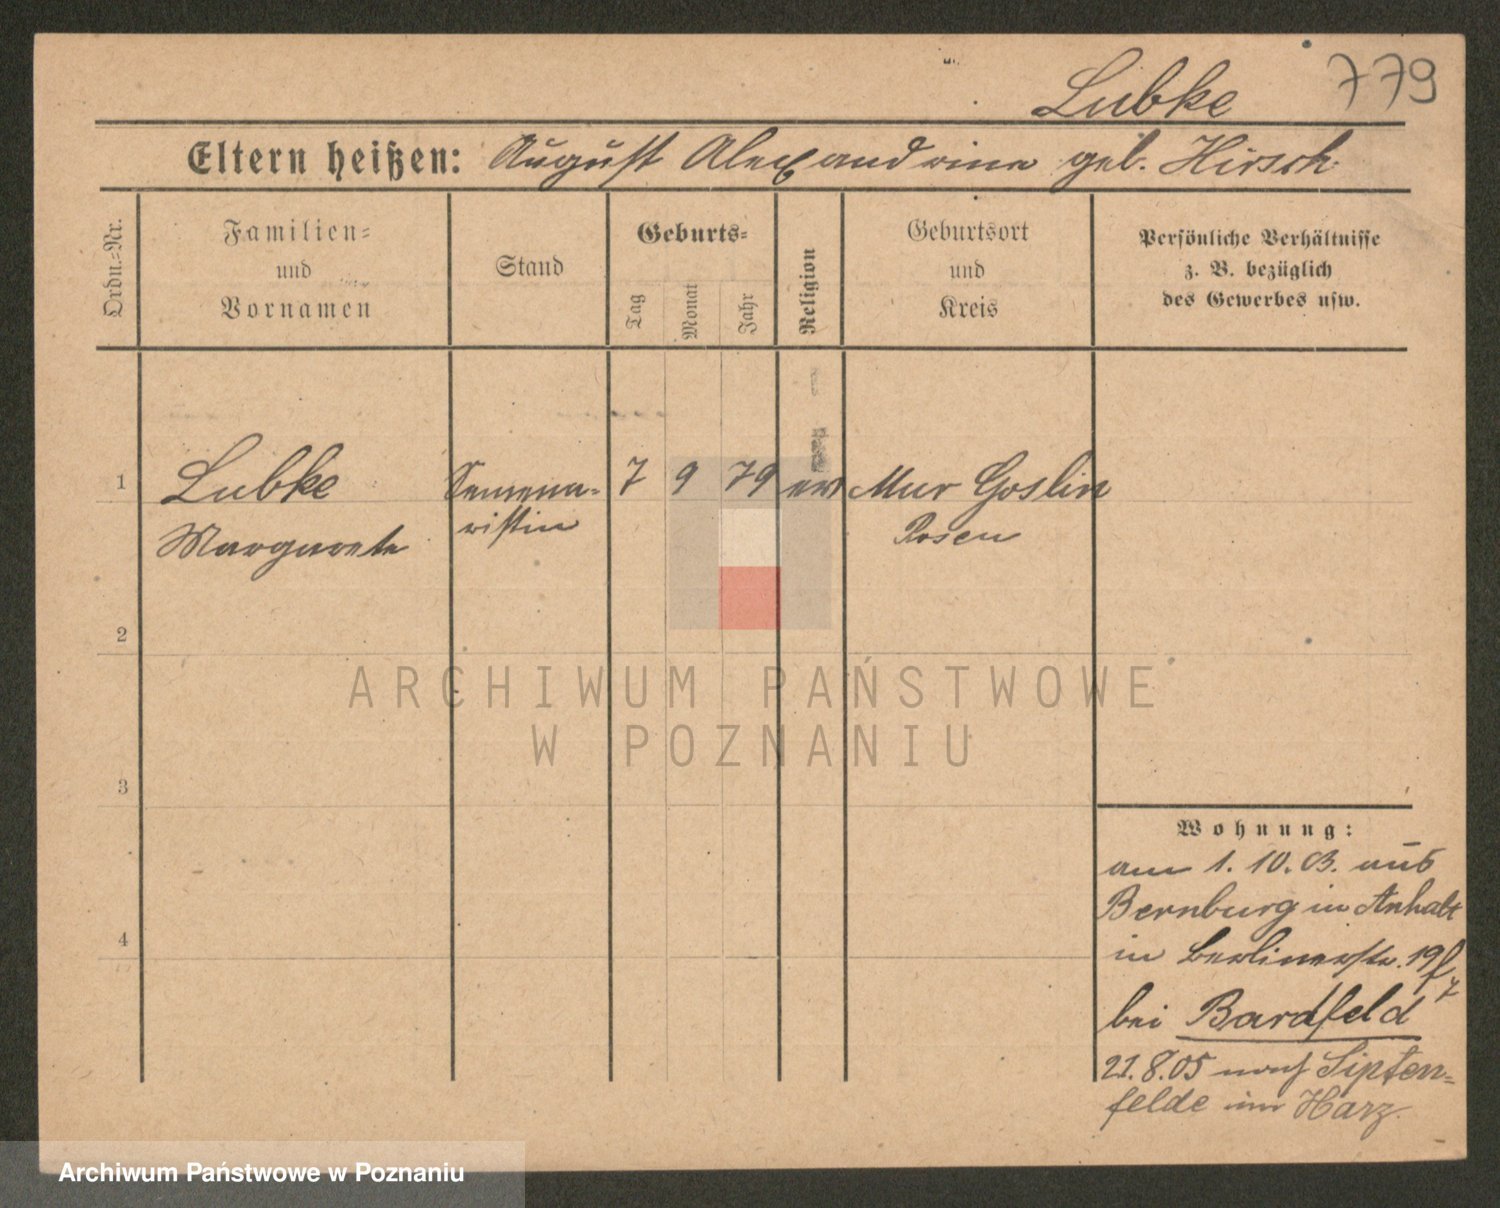 Lubke 779
Eltern heißen: August Alexandrine geb. Hirsch
Ordn.=Nr.
Familien=
und
Vornamen
Stand
Geburts=
Tag
Monat
Jahr
Religion
Geburtsort
und
Kreis
Persönliche Verhältnisse
z. B. bezüglich
des Gewerbes usw.
1 Lubke Semena= 7 9 79 ev Mur Goslin
Margarete ristin Posen
2
3
4
Wohnung:
am 1. 10. 03. aus
Bernburg in Anhalt
in Berlinerstr. 19
bei Bardfeld
21. 8. 05 nach Sipten=
felde im Harz.
ARCHIWUM PAŃSTWOWE
W POZNANIU
Archiwum Państwowe w Poznaniu